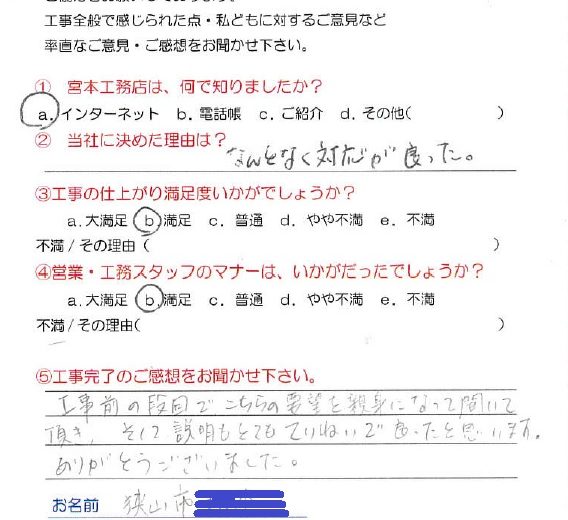 工事全般で感じられた点・私どもに対するご意見など
率直なご意見・ご感想をお聞かせ下さい。
① 宮本工務店は、何で知りましたか？
a. インターネット b. 電話帳 c. ご紹介 d. その他( )
② 当社に決めた理由は？
なんとなく対応が良った。
③工事の仕上がり満足度いかがでしょうか？
a. 大満足 b. 満足 c. 普通 d. やや不満 e. 不満
不満 / その理由 ( )
④営業・工務スタッフのマナーは、いかがだったでしょうか？
a. 大満足 b. 満足 c. 普通 d. やや不満 e. 不満
不満 / その理由( )
⑤工事完了のご感想をお聞かせ下さい。
工事前の段回でこちらの要望を親身になって聞いて
頂き、そして説明もとてもていねいで良ったと思います。
ありがとうございました。
お名前 狭山市